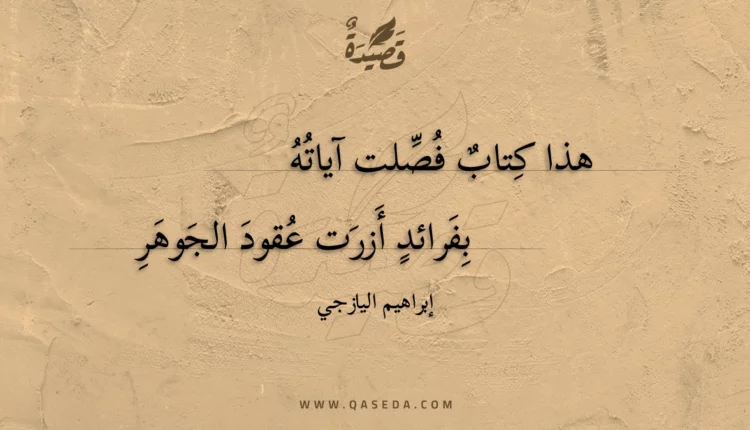 قَصِيدَةٌ
هذا كِتابٌ فُصِّلت آياتُهُ
بِفَرائدٍ أَزرَت عُقودَ الجَوهَرِ
إبراهيم اليازجي
WWW.QASEDA.COM